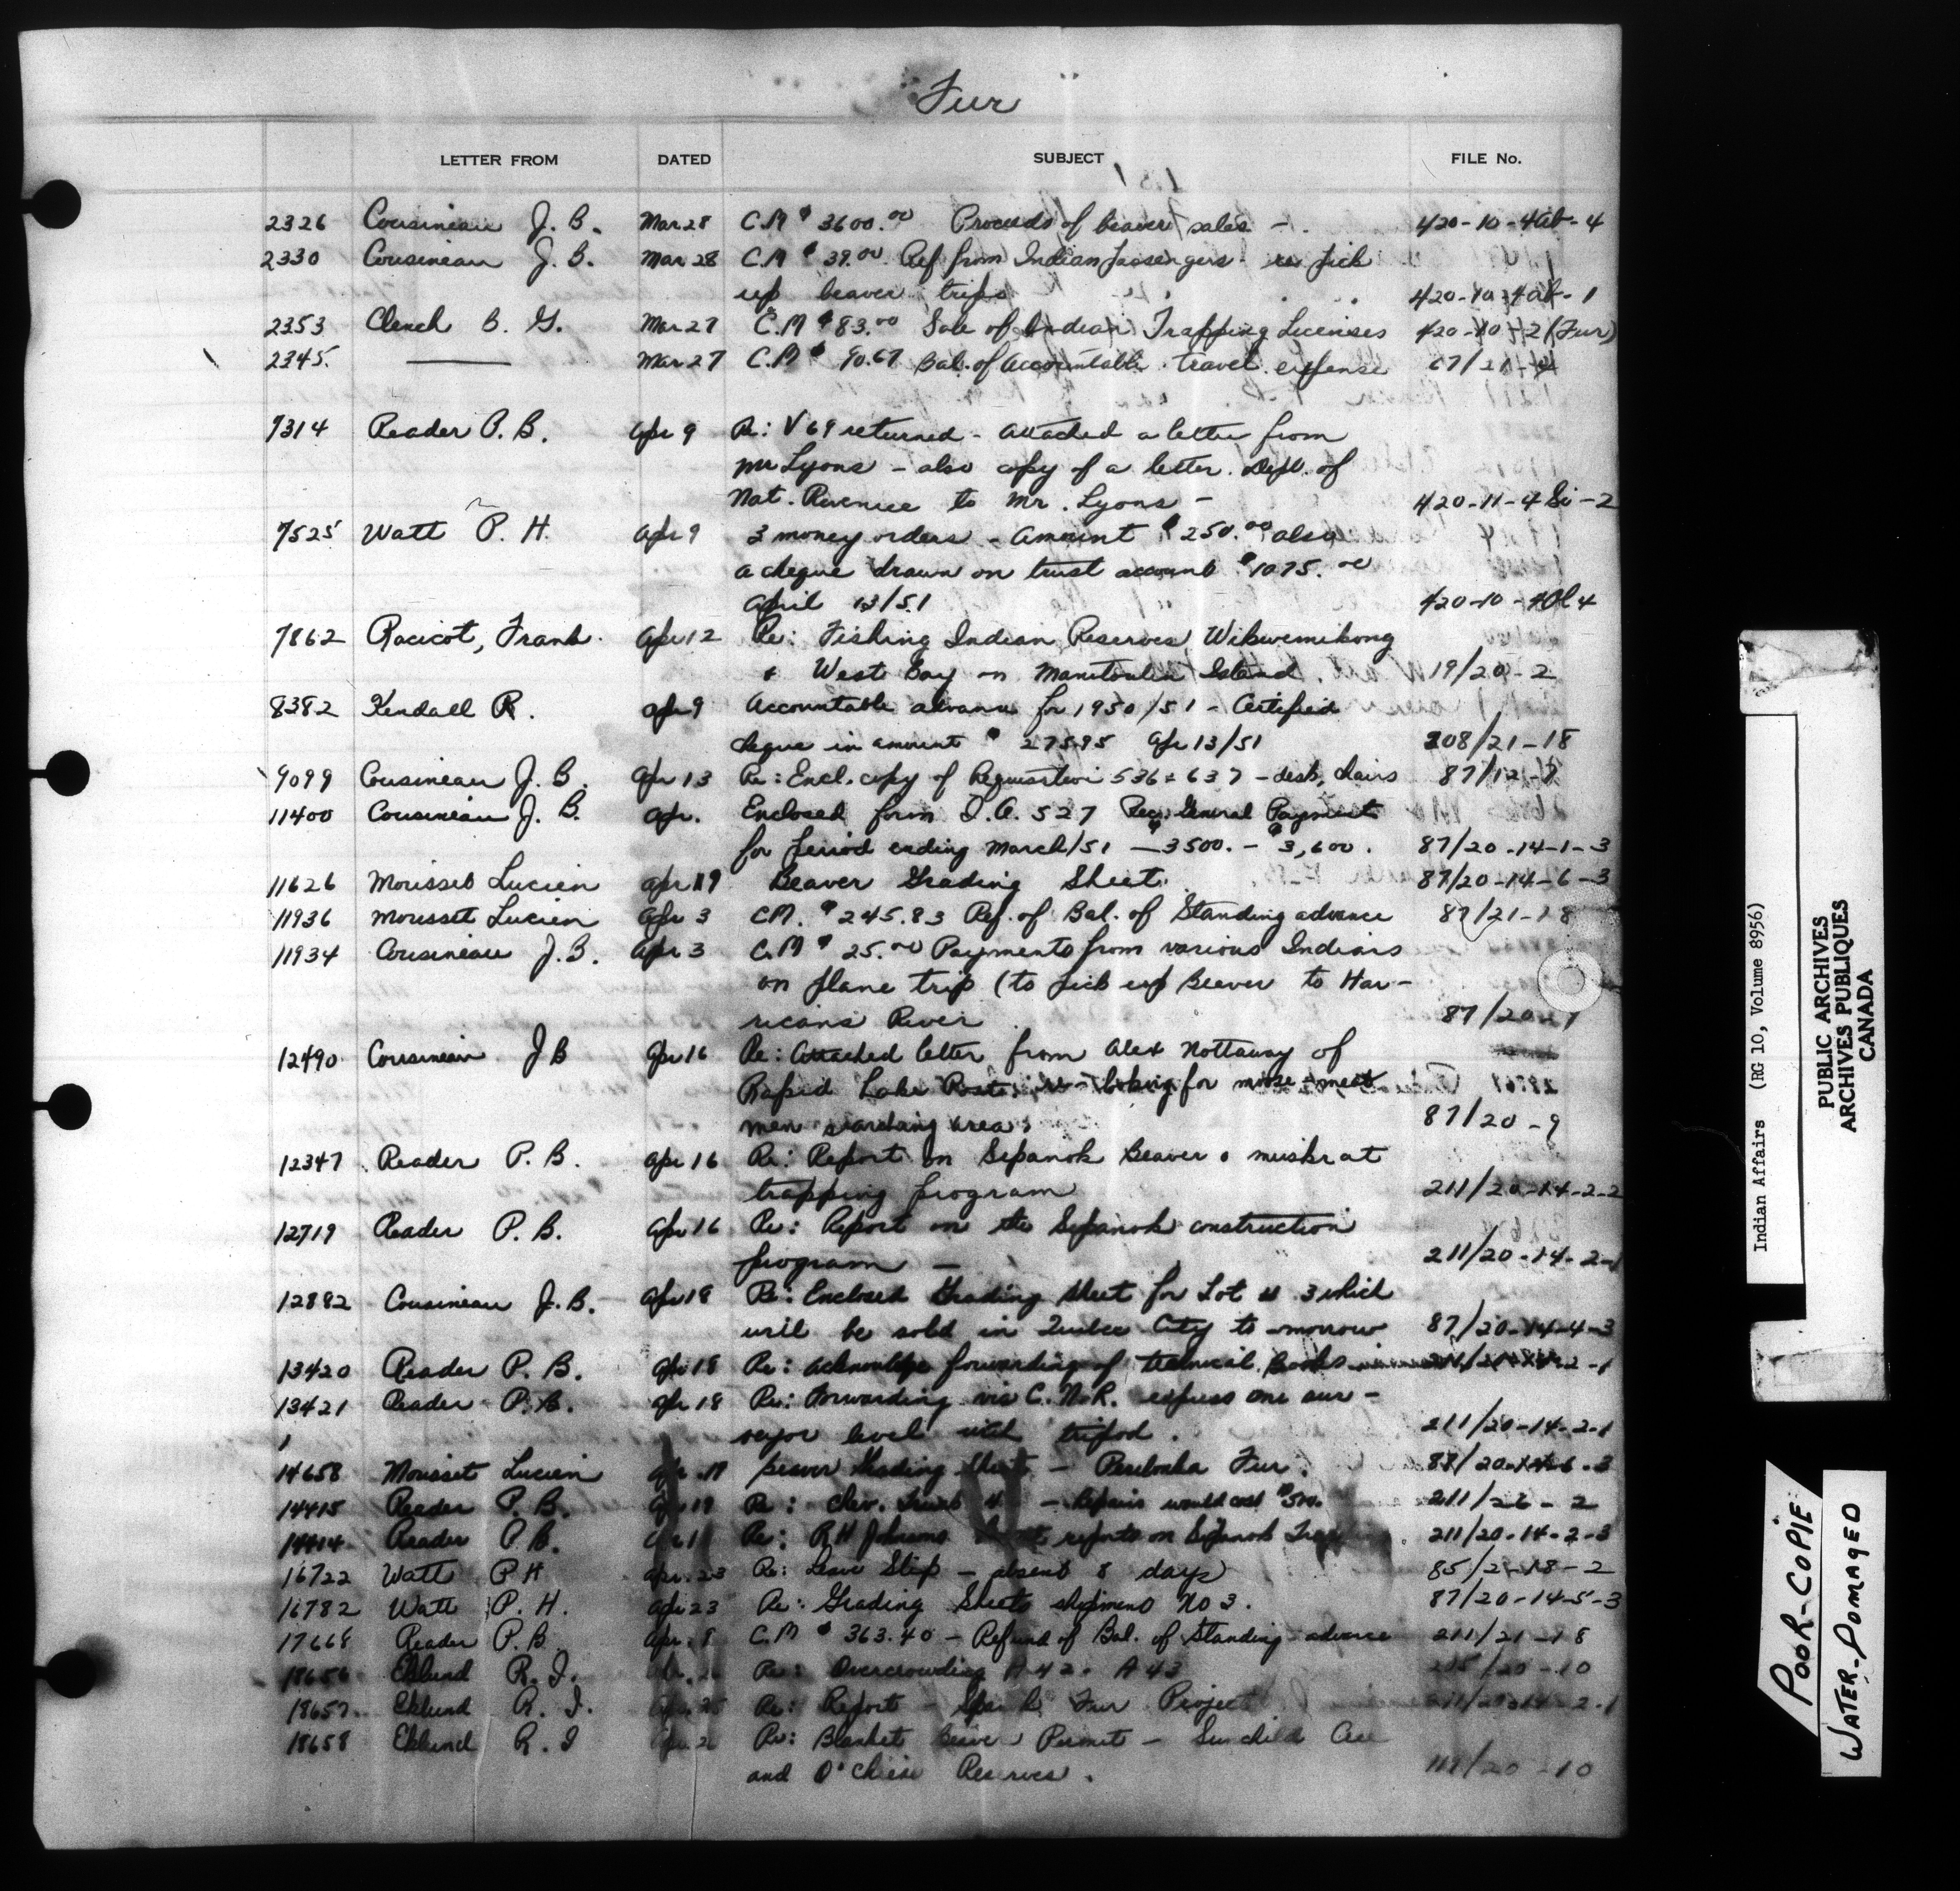 Fur
LETTER FROM DATED SUBJECT FILE No.
2326 Cousineau J. B. Mar 28 C.M $ 3600.00 Proceeds of beaver sales - 420-10-4Ab-4
2330 Cousineau J. B. Mar 28 C.M $ 39.00 Ref from Indian Passengers re pick
up beaver trips 420-10-4ab-1
2353 Clench B. G. Mar 27 C.M $ 83.00 Sale of Indian Trapping Licenses 420-10-2 (Fur)
2345. —— Mar 27 C.M $ 90.67 Bal. of Accountable travel expense 67/21-4
7314 Reader P. B. Apr 9 Re: V 69 returned - attached a letter from
Mr Lyons - also copy of a letter Dept. of
Nat. Revenue to Mr. Lyons - 420-11-4 Si-2
7525 Watt P. H. Apr 9 3 money orders - Amount $ 250.00 also
a cheque drawn on trust account $ 1075.00
April 13/51 420-10-4Ol 4
7862 Racicot, Frank. Apr 12 Re: Fishing Indian Reserves Wikwemikong
& West Bay on Manitoulin Island. 19/20-2
8382 Kendall R. Apr 9 Accountable advance for 1950/51 - Certified
cheque in amount $ 275.95 Apr 13/51 208/21-18
9099 Cousineau J. B. Apr 13 Re: Encl. copy of Requisition 536 & 637 - desk, chairs 87/12-9
11400 Cousineau J. B. Apr. Enclosed form I. A. 527 Rec. General Payments
for period ending March/51 — $3500. - $3,600. 87/20-14-1-3
11626 Morisset Lucien Apr 19 Beaver Grading Sheet. 87/20-14-6-3
11936 Morisset Lucien Apr 3 CM. $ 245.83 Ref. of Bal. of Standing advance 87/21-18
11934 Cousineau J. B. Apr 3 C.M $ 25.00 Payments from various Indians
on plane trip (to pick up Beaver to Har-
ricana River 87/20-9
12490 Cousineau J B Apr 16 Re: Attached letter from Alex Nottaway of
Rapid Lake Post: re - looking for moose-meat
men searching area: 87/20-9
12347 Reader P. B. Apr 16 Re: Report on Sipanok Beaver & muskrat
trapping program 211/20-14-2-2
12719 Reader P. B. Apr 16 Re: Report on the Sipanok construction
program — 211/20-14-2-1
12882 Cousineau J. B. Apr 18 Re: Enclosed Grading sheet for Lot # 3 which
will be sold in Quebec City to-morrow 87/20-14-4-3
13420 Reader P. B. Apr 18 Re: Acknowledge forwarding of technical Books 211/20-14-2-1
13421 Reader P. B. Apr 18 Re: Forwarding via C.N.R. express one sur-
veyor level with tripod. 211/20-14-2-1
14658 Morisset Lucien Apr. 19 Beaver Grading Sheets - Peribonka Fur. 87/20-14-6-3
14415 Reader P. B. Apr 19 Re: Chev. Truck - Repairs would cost $500. 211/26-2
14414 Reader P. B. Re: R H Johnson reports on Sipanok 211/20-14-2-3
16722 Watt P H Apr. 23 Re: Leave Slip - absent 8 days 85/21-18-2
16782 Watt P. H. Apr 23 Re: Grading Sheets shipment No 3. 87/20-14-5-3
17668 Reader P. B. Apr. 8 C.M $ 363.40 - Refund of Bal. of Standing advance 211/21-18
18656 Eklund R. I. Re: Overcrowding A 42. A 43 /20-10
18657. Eklund R. I. Re: Report - Fur Project 2-1
18658 Eklund R. I Re: Blanket Beaver Permit - Sunchild Cree
and O'Chiese Reserves. /20-10
Indian Affairs (RG 10, Volume 8956)
PUBLIC ARCHIVES
ARCHIVES PUBLIQUES
CANADA
POOR-COPIE
WATER-DOMAGED